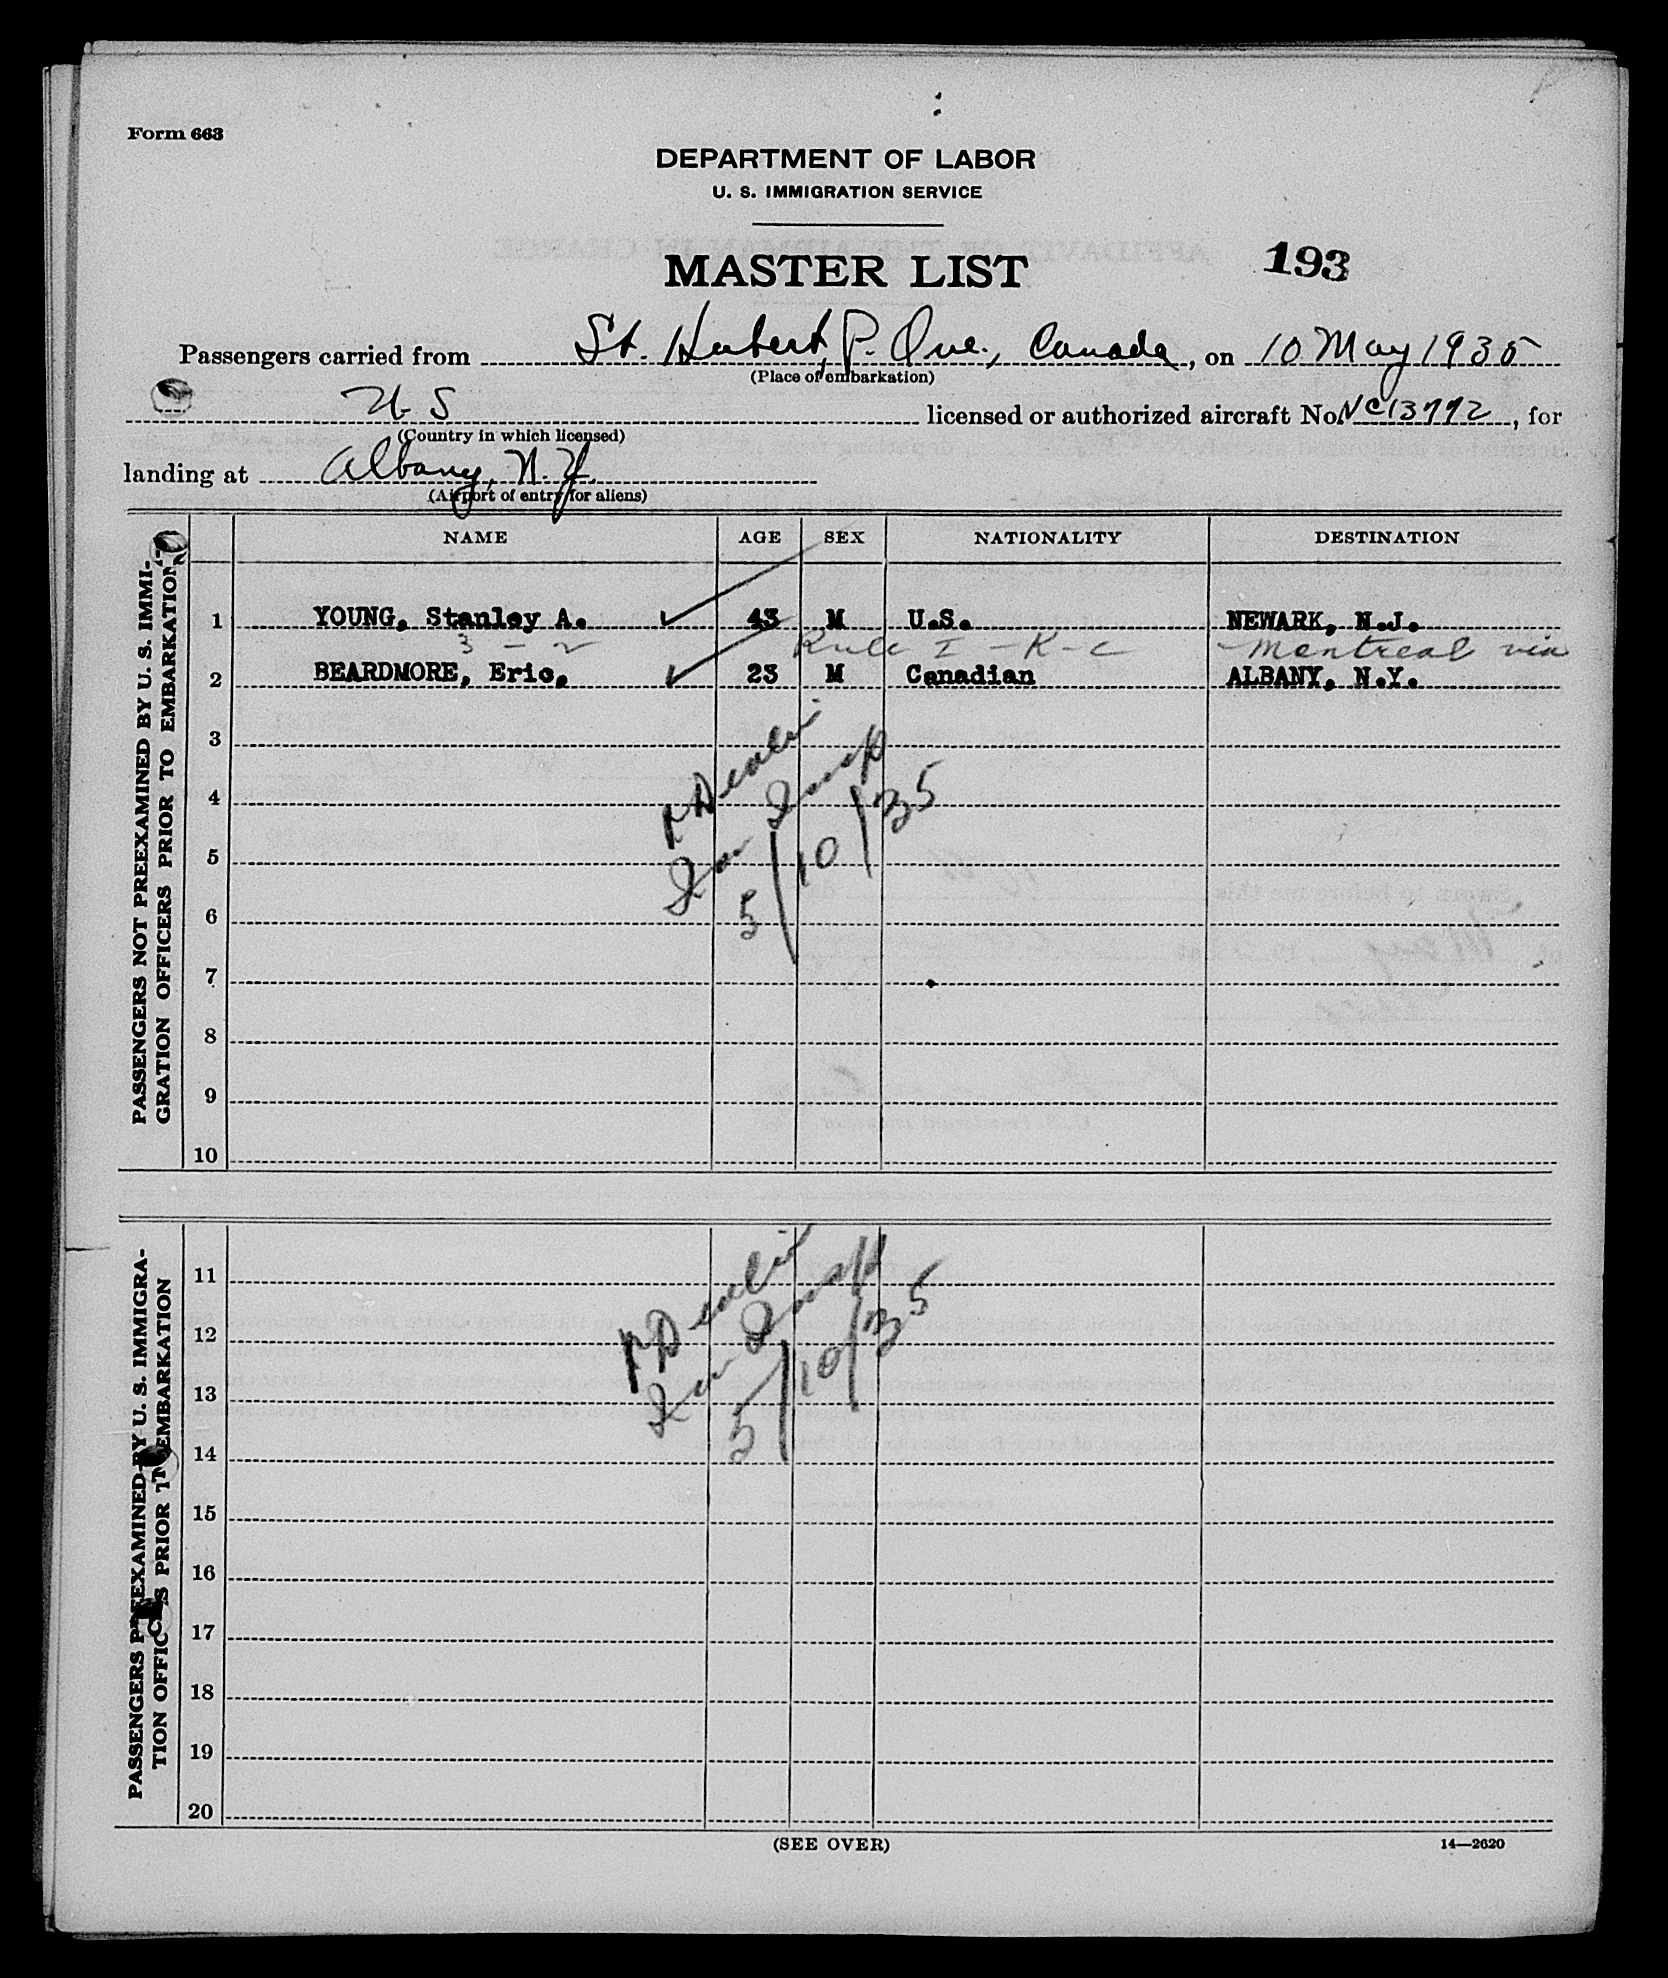 Form 663
DEPARTMENT OF LABOR
U. S. IMMIGRATION SERVICE
MASTER LIST
193
Passengers carried from St. Hubert, P. Que., Canada, on 10 May 1935
(Place of embarkation)
U S licensed or authorized aircraft No. NC13772, for
(Country in which licensed)
landing at Albany, N.Y.
(Airport of entry for aliens)
NAME AGE SEX NATIONALITY DESTINATION
PASSENGERS NOT PREEXAMINED BY U. S. IMMI-
GRATION OFFICERS PRIOR TO EMBARKATION
1 YOUNG, Stanley A. 43 M U.S. NEWARK, N.J.
3 - 2 Rule I - K - c - Montreal via
2 BEARDMORE, Eric. 23 M Canadian ALBANY, N.Y.
3
4
5
6
7
8
9
10
Insp
5/10/35
PASSENGERS PREEXAMINED BY U. S. IMMIGRA-
TION OFFICERS PRIOR TO EMBARKATION
11
12
13
14
15
16
17
18
19
20
Insp
5/10/35
(SEE OVER)
14—2620